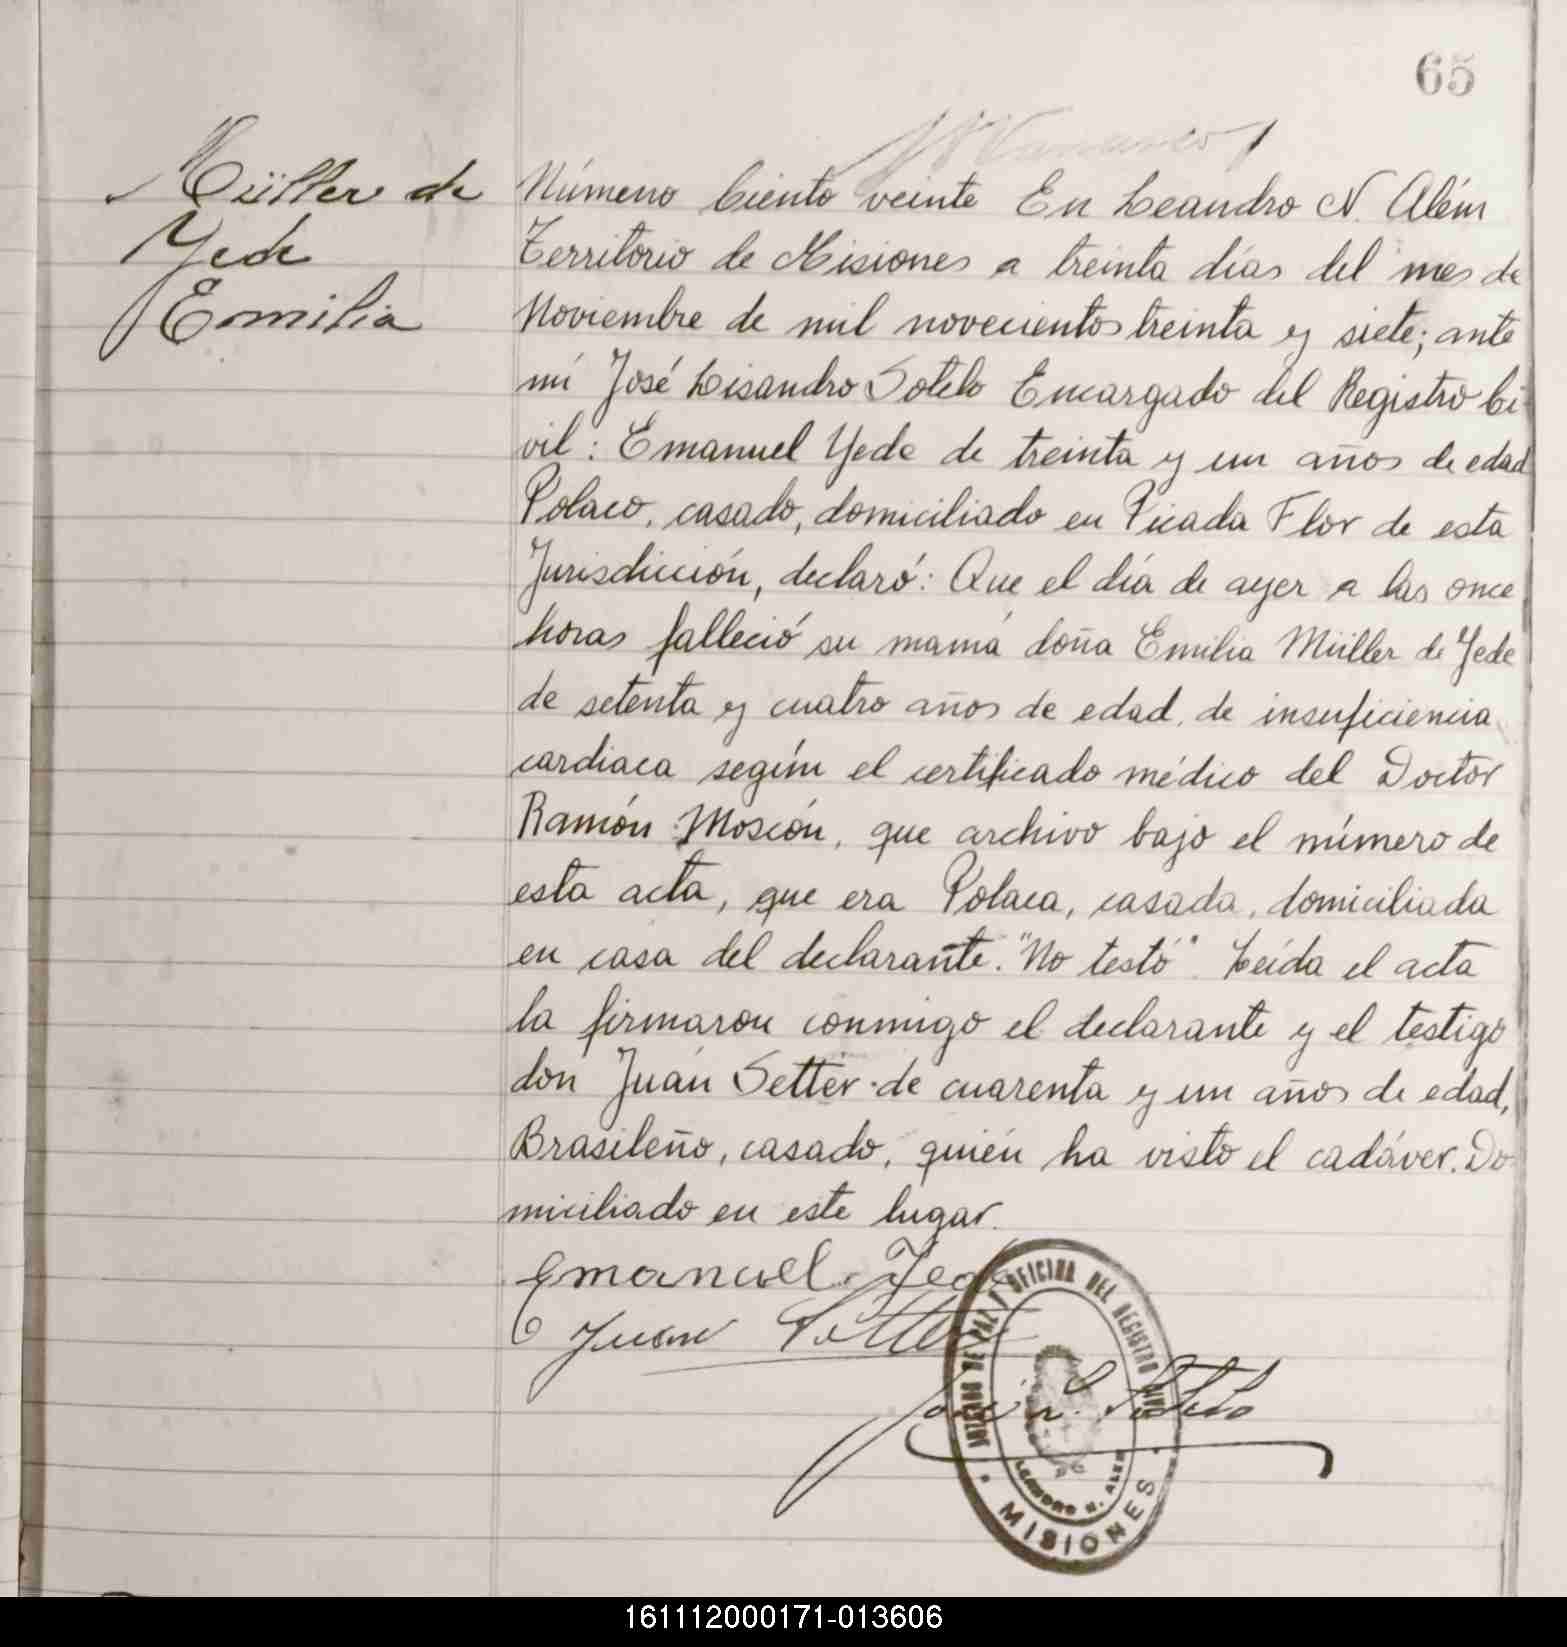 65
Müller de
Yede
Emilia
Número Ciento veinte En Leandro N. Além
Territorio de Misiones a treinta días del mes de
Noviembre de mil novecientos treinta y siete; ante
mí José Lisandro Sotelo Encargado del Registro Ci-
vil: Emanuel Yede de treinta y un años de edad
Polaco, casado, domiciliado en Picada Flor de esta
Jurisdicción, declaró: Que el día de ayer a las once
horas falleció su mamá doña Emilia Müller de Yede
de setenta y cuatro años de edad, de insuficiencia
cardiaca según el certificado médico del Doctor
Ramón Moscón, que archivo bajo el número de
esta acta, que era Polaca, casada, domiciliada
en casa del declarante. "No testó". Leída el acta
la firmaron conmigo el declarante y el testigo
don Juan Setter de cuarenta y un años de edad,
Brasileño, casado, quién ha visto el cadáver. Do
miciliado en este lugar.
Emanuel Yede
Juan Setter
José L. Sotelo
JUZGADO DE PAZ Y OFICINA DEL REGISTRO CIVIL
LEANDRO N. ALEM
MISIONES
161112000171-013606